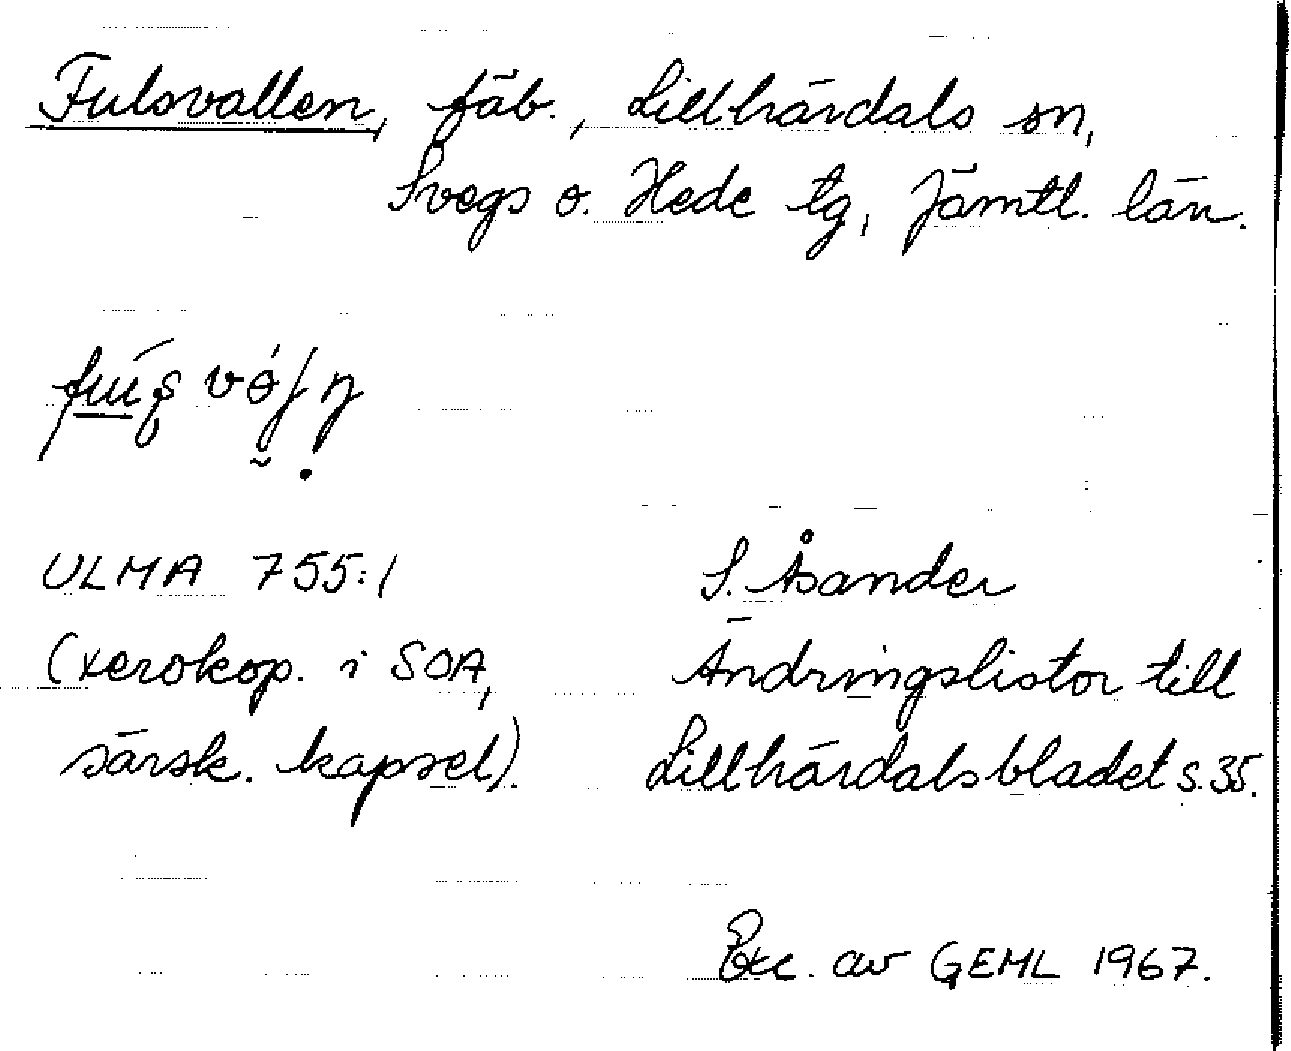 Fulsvallen, fäb., Lillhärdals sn,
Svegs o. Hede tg, Jämtl. län.
ULMA 755:1
S. Åsander
(xerokop. i SOA,
Ändringslistor till
särsk. kapsel).
Lillhärdalsbladet s. 35.
Exc. av GEML 1967.